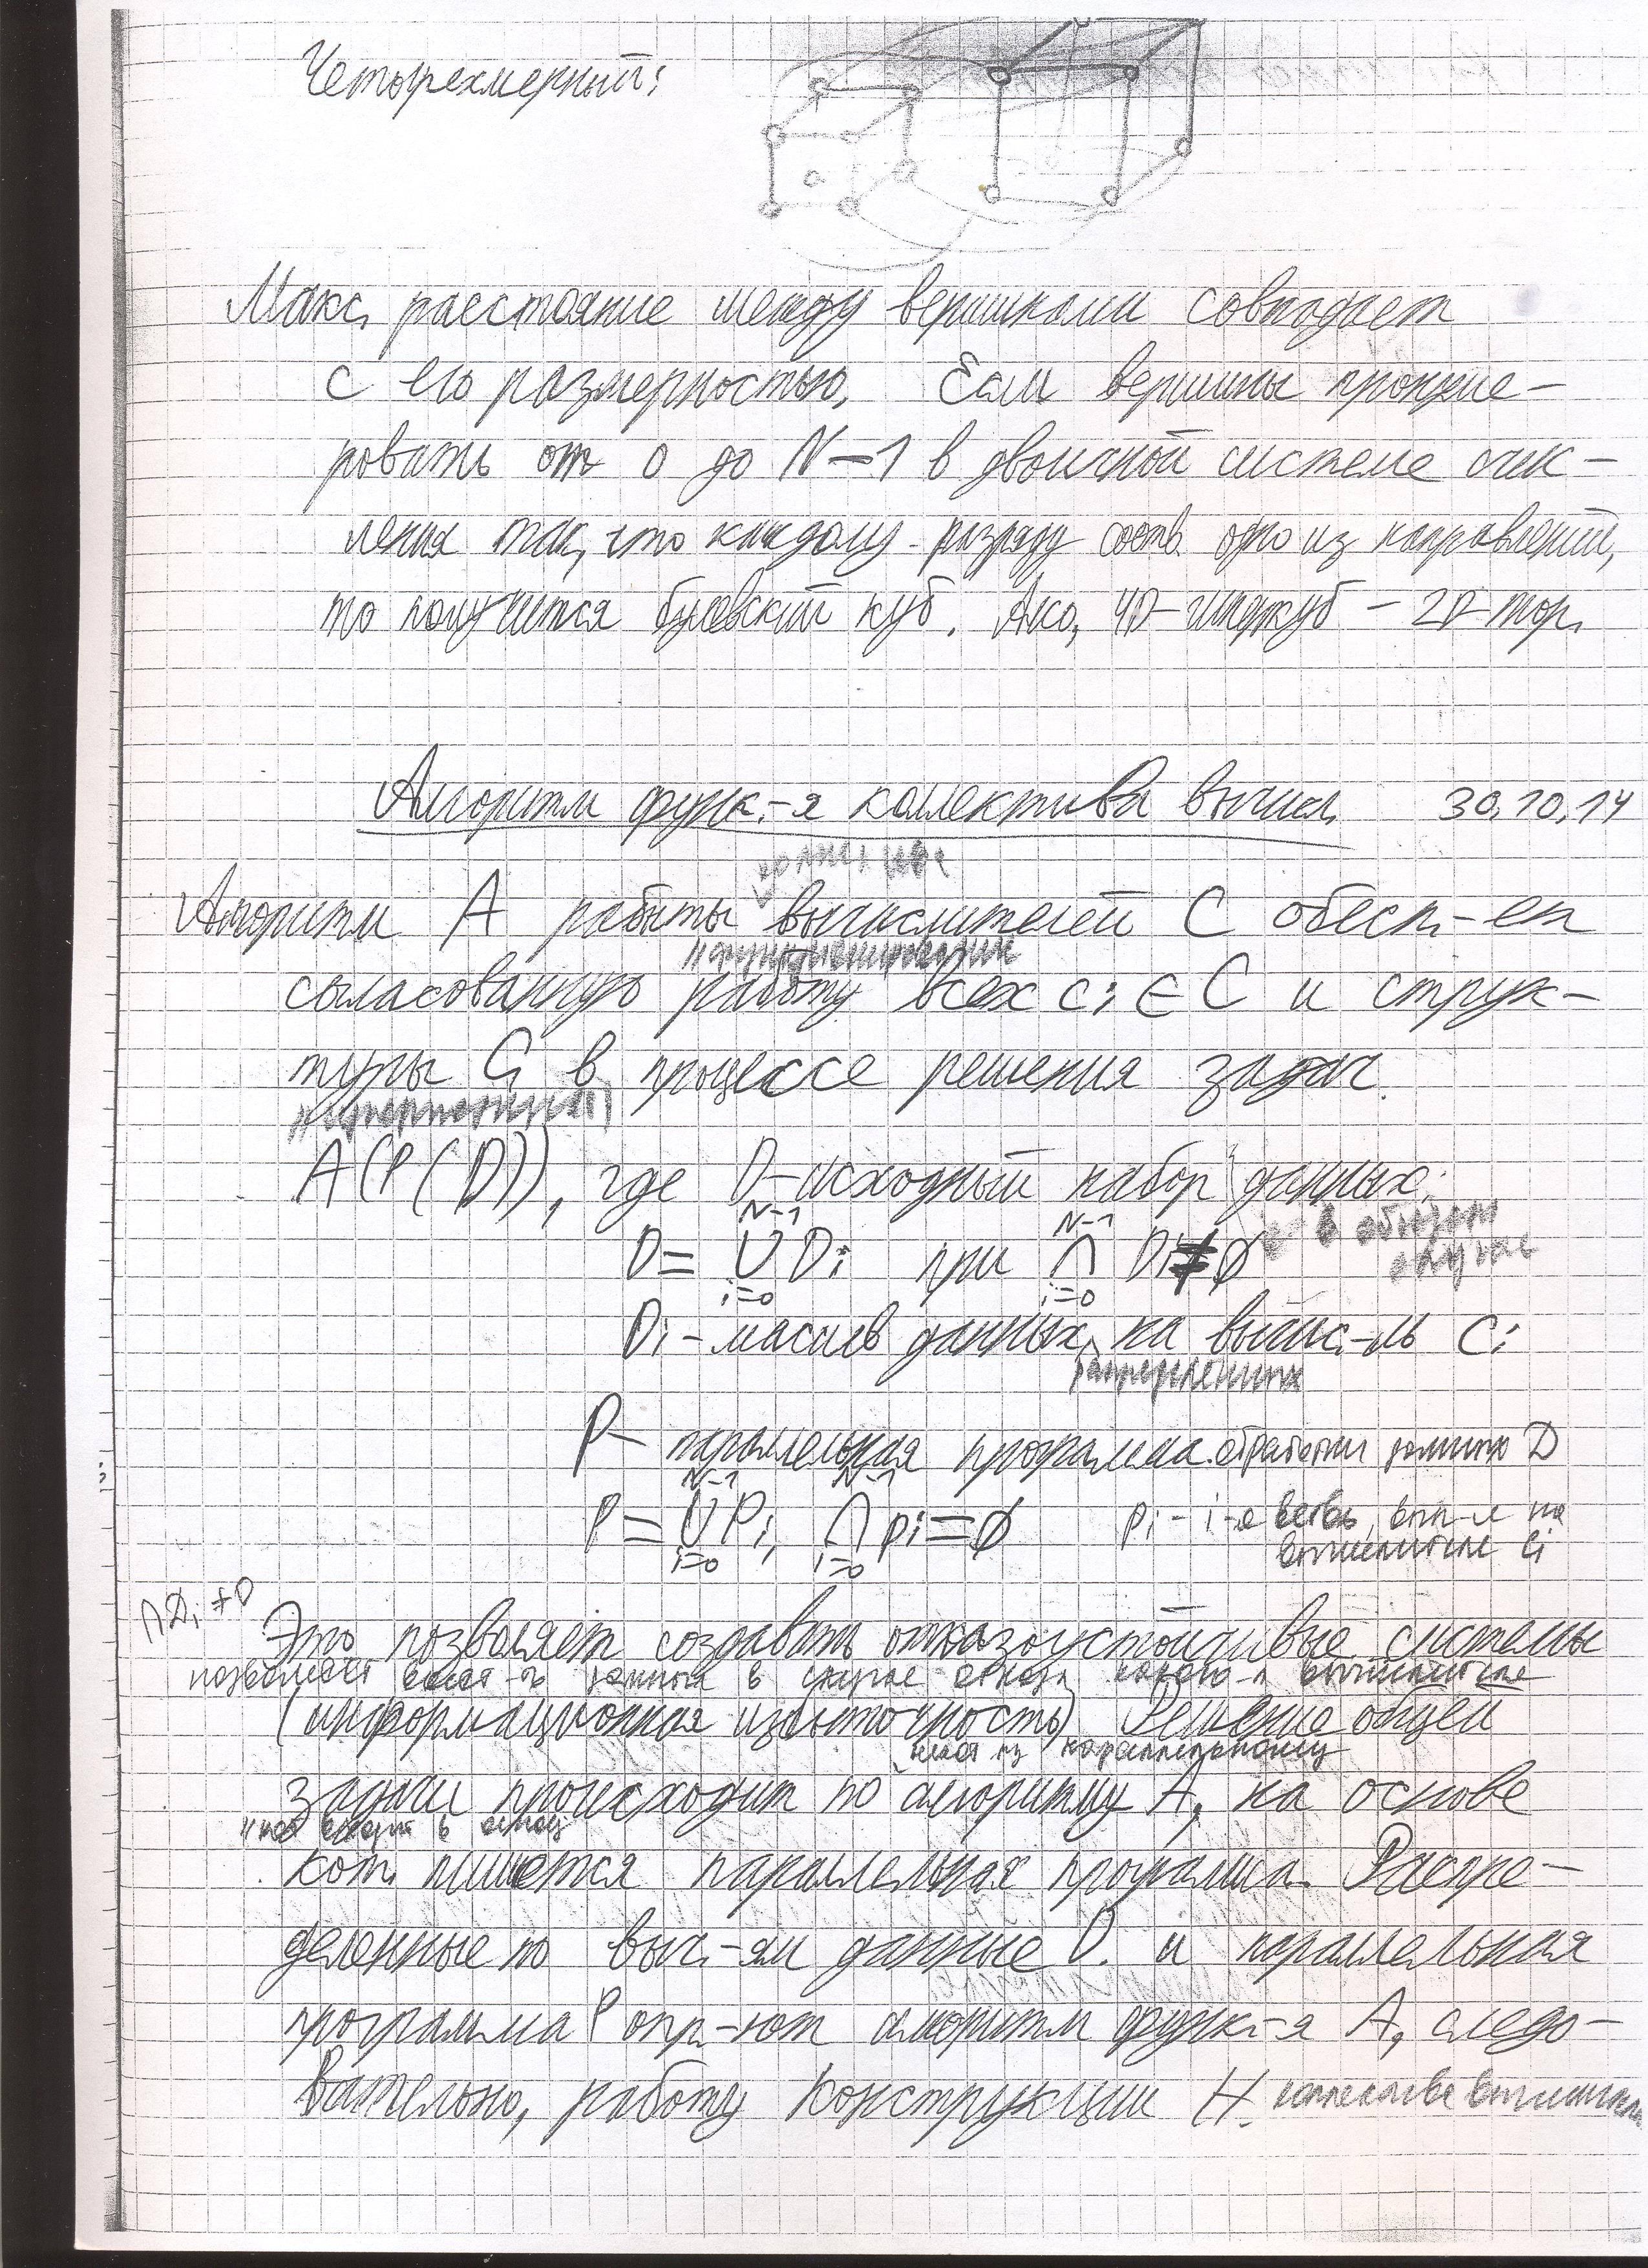 Четырехмерный:
Макс. расстояние между вершинами совпадает
с его размерностью. Если вершины пронуме-
ровать от 0 до N-1 в двоичной системе счис-
ления так, что каждому разряду соотв. одно из направлений,
то получится булевский куб. 4D-гиперкуб - 2D-тор.
Алгоритм функ.-я коллектива вычисл. 30.10.14
Алгоритм A работы вычислителей C обесп-ет
"функционирование
согласованную работу всех ci ∈ C и струк-
туры G в процессе решения задач.
A(P(D)), где D-исходный набор данных:
D = ∪ Di при ∩ Di ≠ ∅ в общем случае
N-1 i=0 N-1 i=0
Di - массив данных на вычис-ль Ci
распределенных
P - параллельная программа обработки данных D
P = ∪ Pi, ∩ pi = ∅ Pi - i-я ветвь, вып-я на
N-1 i=0 N-1 i=0 вычислителе Ci
∩Di ≠ 0
Это позволяет создавать отказоустойчивые системы
позволяет данных в случае отказа какого-л вычислителя
(информационная избыточность) Решение общей
параллельному
задачи происходит по алгоритму A, на основе
кот. пишется параллельная программа. Распре-
деленные по выч.-ям данные D. и параллельная
программа P опр-ют алгоритм функ.-я A, следо-
вательно, работу конструкции H. коллектива вычислит.